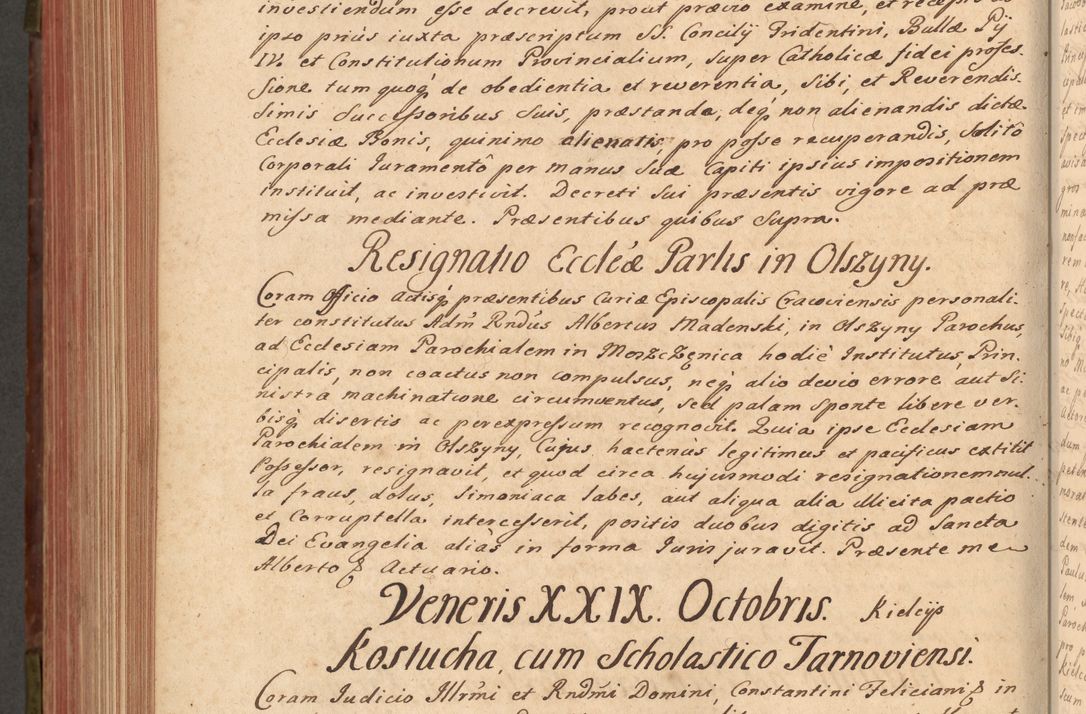 investiendum esse decrevit, prout prævio examine, et recepto ab
ipso prius iuxta præscriptum SS. Concilij Tridentini, Bullæ Pij
IV. et Constitutionum Provincialium, super Catholicæ fidei profes
sione tum quoq; de obedientia et reverentia, Sibi, et Reverendis-
simis Successoribus Suis, præstanda, deq; non alienandis dictæ
Ecclesiæ Bonis, quinimo alienatis, pro posse recuperandis, Solitô
Corporali Juramentô per manus Suæ Capiti ipsius impositionem
instituit, ac investivit. Decreti Sui præsentis vigore ad præ
missa mediante. Præsentibus quibus Supra.
Resignatio Eccleæ Parlis in Olszyny.
Coram Officio Actisq; præsentibus Curiæ Episcopalis Cracoviensis personali-
ter constitutus Adm̃ Rndus Albertus Madenski, in Olszyny Parochus,
ad Ecclesiam Parochialem in Moszczęnica hodiè Institutus, Prin-
cipalis, non coactus non compulsus, neq; alio devio errore, aut Si-
nistra machinatione circumventus, sed palam Sponte libere ver-
bisq; disertis ac perexpressum recognovit. Quia ipse Ecclesiam
Parochialem in Olszyny, Cujus hactenus legitimus et pacificus extitit
Possessor, resignavit, et quod circa hujusmodi resignationem nul-
la fraus, dolus, Simoniaca labes, aut aliqua alia illicita pactio
et Corruptella intercesserit, positis duobus digitis ad Sancta
Dei Evangelia alias in forma Juris juravit. Præsente me
Alberto ꝑ Actuario.
Veneris XXIX. Octobris. Kielcijs
Kostucha, cum Scholastico Tarnoviensi.
Coram Judicio Illrm̃i et Rndm̃i Domini, Constantini Feliciani ꝑ in